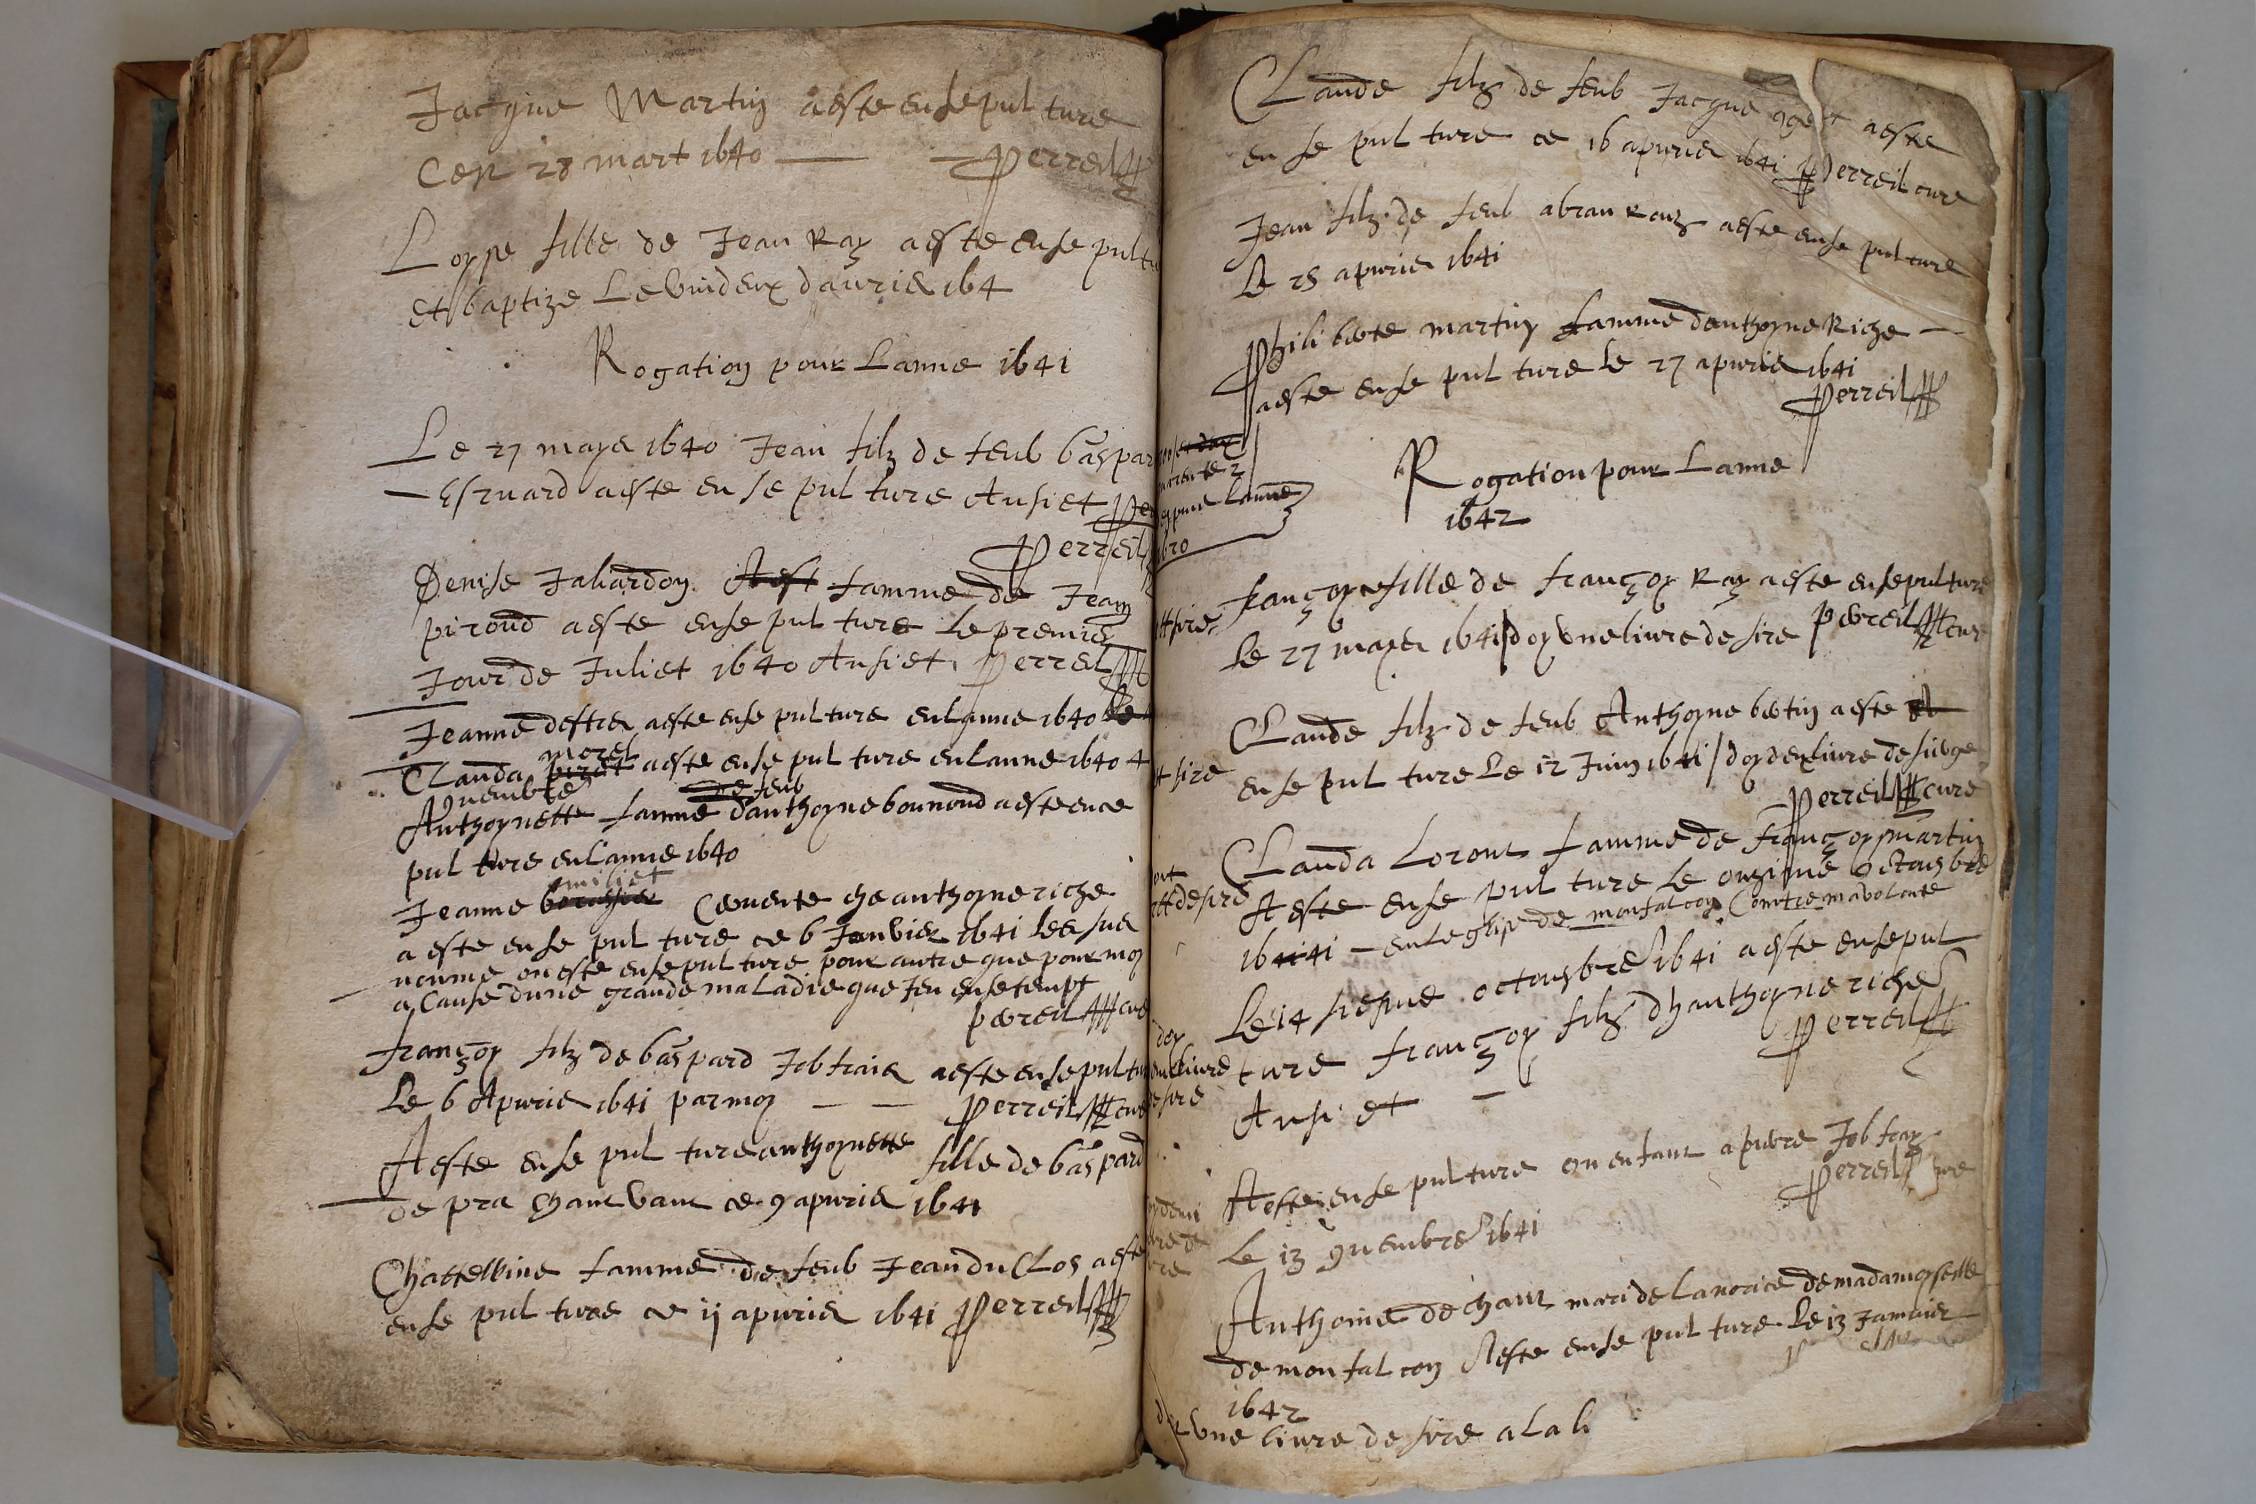 Jacque Martin a este ensepul ture
Ce 28 mart 1640 Perreil
Loyse fille de Jean Ray a este ensepultu
et baptize Le vuideux dauriel 164
Rogation pour Lanne 1641
Le 27 maye 1640 Jean filz de feub Gaspar
a este en se pul ture Ansiet
Perreil
Denise Jaliardon famme de Jean
piroud a este ense pul ture Le premier
Jour de Juliet 1640 Ansiet Perreil
Jeanne destra a este ense pul ture en Lanne 1640
morel
Clauda piret a este ense pul ture en Lanne 1640 4
9nembre de feub
Anthoynette famme danthoyne bounoud a este ence
pul ture en Lanne 1640
miliet
Jeanne che anthoyne riche
a este en se pul ture ce 6 Janvier 1641
nomme on este ense pul ture pour autre que pour moy
a Cause dune grande maladie que Jeu en se tempt
perreil cure
françoy filz de baspard Jobfrais a este ensepultu
Le 6 Apurie 1641 par moy Perreil cure
A este ense pul ture anthoynette fille de Gaspard
de pra chant vant ce 9 apurie 1641
Chattelline famme de feub Jean du Clos a este
ense pul ture ce ij apurie 1641 Perreil
Claude filz de feub Jacque a este
en se pul ture ce 16 apurie 1641 Perreil cure
Jean filz de feub abran Rouz a este ense pul ture
Le 25 apurie 1641
Philiberte martin famme danthoyne Riche
a este ense pul ture le 27 apurie 1641
Perreil
Rogation pour Lanne
1642
françoyse fille de françoy Ray a este ensepulture
Le 27 maye 1641 doy vne liure de sire perreil cure
Claude filz de feub Anthoyne bertin a este
ense pul ture Le 12 Juin 1641 / doy dex liure de sierge
Perreil cure
Clauda Loront famme de françoy martin
A este ense pul ture Le onzime octousbre
1641 en Leglise de monfalcon Contre ma volonte
Le 14 octousbre 1641 a este ensepul
ture françoy filz dhanthoyne riche
Perreil
Ansi et
A este ensepulture on enfant a pierre Jobfray
Perreil cure
Le 13 9nembre 1641
Anthoine de chant mari de la norice de madamoyselle
de monfalcon A este ense pul ture Le 13 Januier
1642
doy vne liure de sire a la li